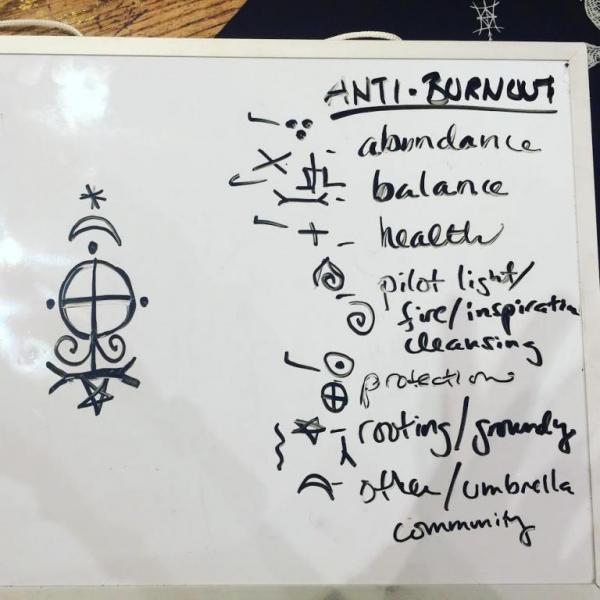 ANTI-BURNOUT
abundance
balance
health
pilot light/
fire/inspiration
cleansing
protection
rooting/groundy
other/umbrella
community